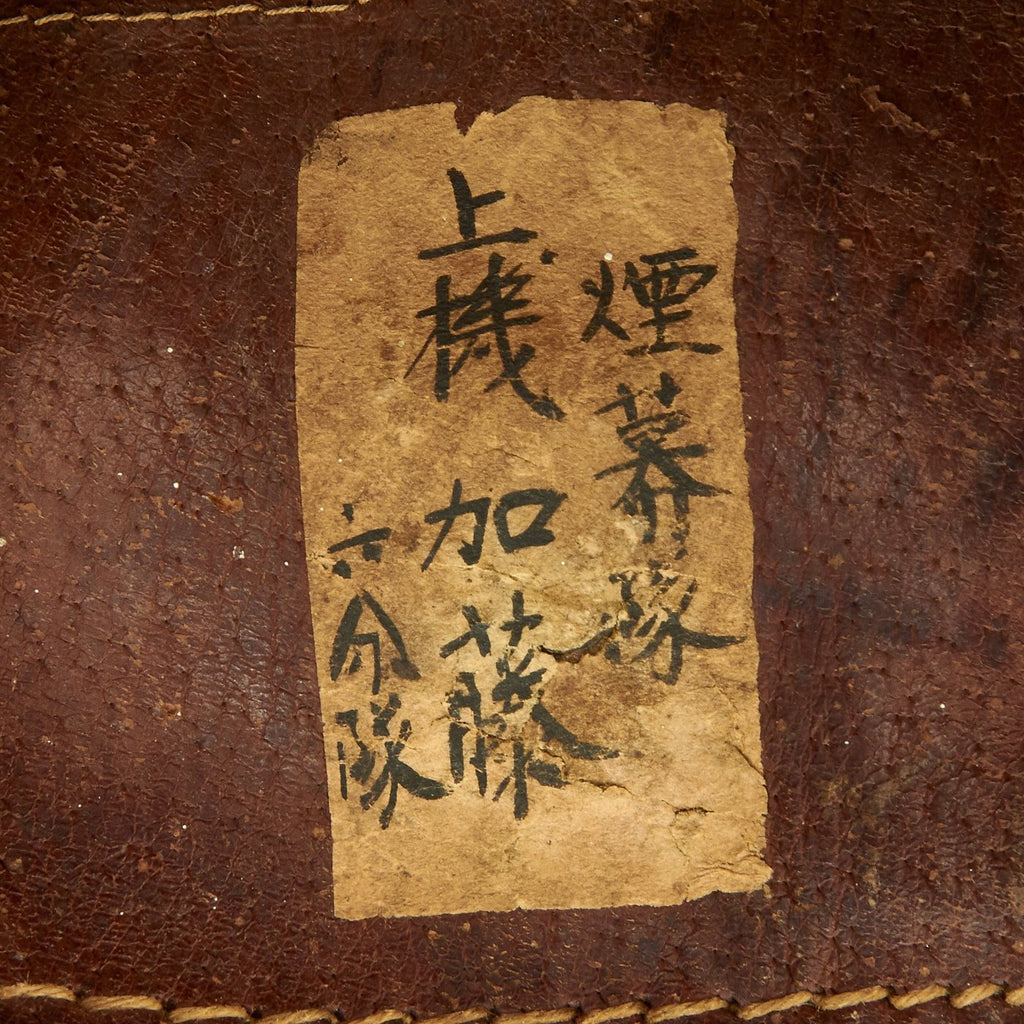 煙幕隊
上機 加藤
六分隊